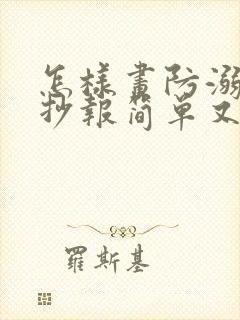 怎樣畫防溺
抄報简單又
羅斯基